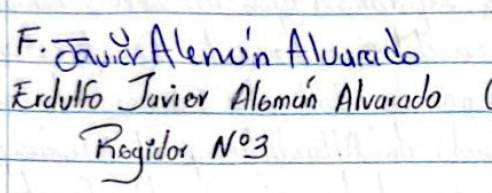 F. Javier Alemán Alvarado
Erdulfo Javier Alemán Alvarado (
Regidor N°3